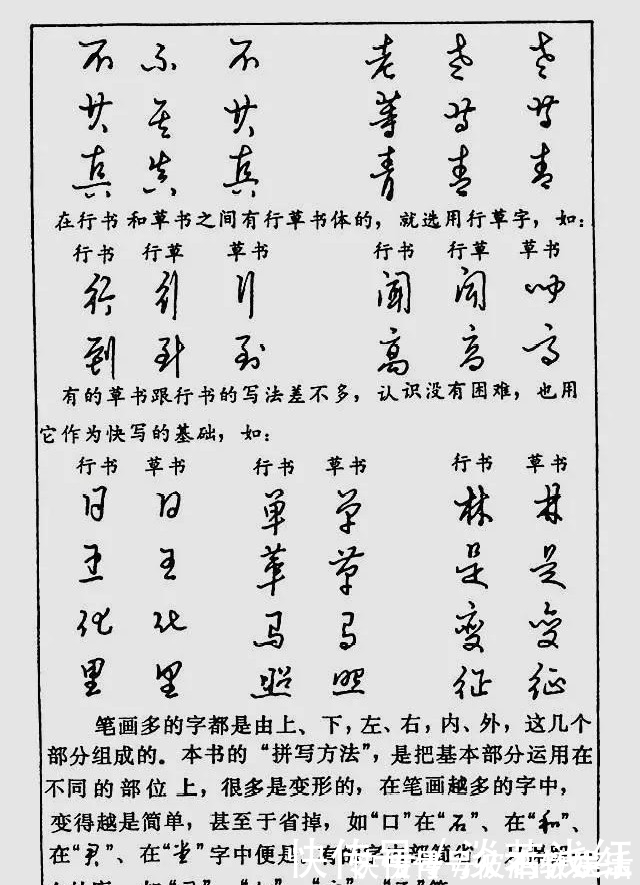 不 不 不 老 老 老
共 共 共 等 等 等
真 真 真 青 青 青
在行书和草书之间有行草书体的，就选用行草字，如：
行书 行草 草书 行书 行草 草书
行 行 行 闻 闻 闻
到 到 到 高 高 高
有的草书跟行书的写法差不多，认识没有困难，也用
它作为快写的基础，如：
行书 草书 行书 草书 行书 草书
日 日 单 单 林 林
王 王 是 是
化 化 马 马 变 变
里 里 照 照 征 征
笔画多的字都是由上、下，左、右，内、外，这几个
部分组成的。本书的“拼写方法”，是把基本部分运用在
不同的部位上，很多是变形的，在笔画越多的字中，
变得越是简单，甚至于省掉，如“口”在“石”、在“和”、
在“君”、在“堂”字中便是